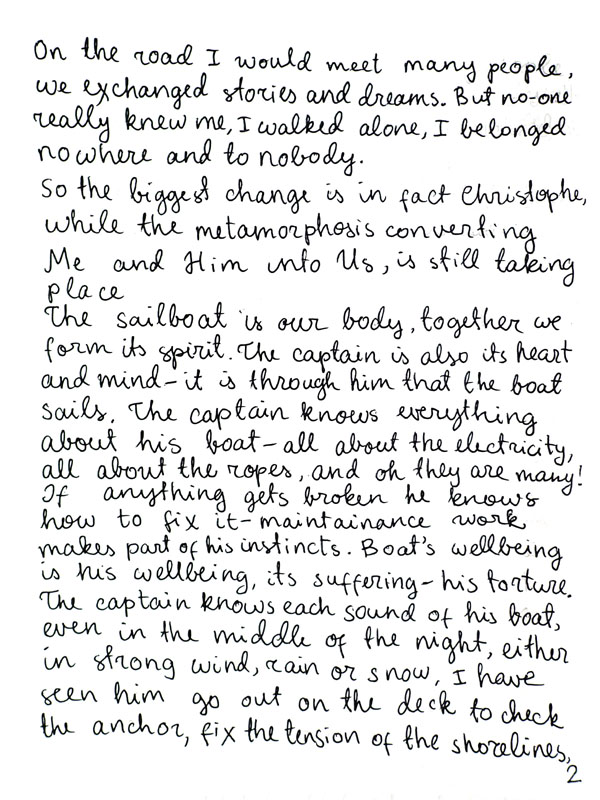 On the road I would meet many people,
we exchanged stories and dreams. But no-one
really knew me, I walked alone, I belonged
nowhere and to nobody.
So the biggest change is in fact Christophe,
while the metamorphosis converting
Me and Him into Us, is still taking
place
The sailboat is our body, together we
form its spirit. The captain is also its heart
and mind - it is through him that the boat
sails. The captain knows everything
about his boat - all about the electricity,
all about the ropes, and oh they are many!
If anything gets broken he knows
how to fix it - maintainance work
makes part of his instincts. Boat's wellbeing
is his wellbeing, its suffering - his torture.
The captain knows each sound of his boat,
even in the middle of the night, either
in strong wind, rain or snow, I have
seen him go out on the deck to check
the anchor, fix the tension of the shorelines,
2